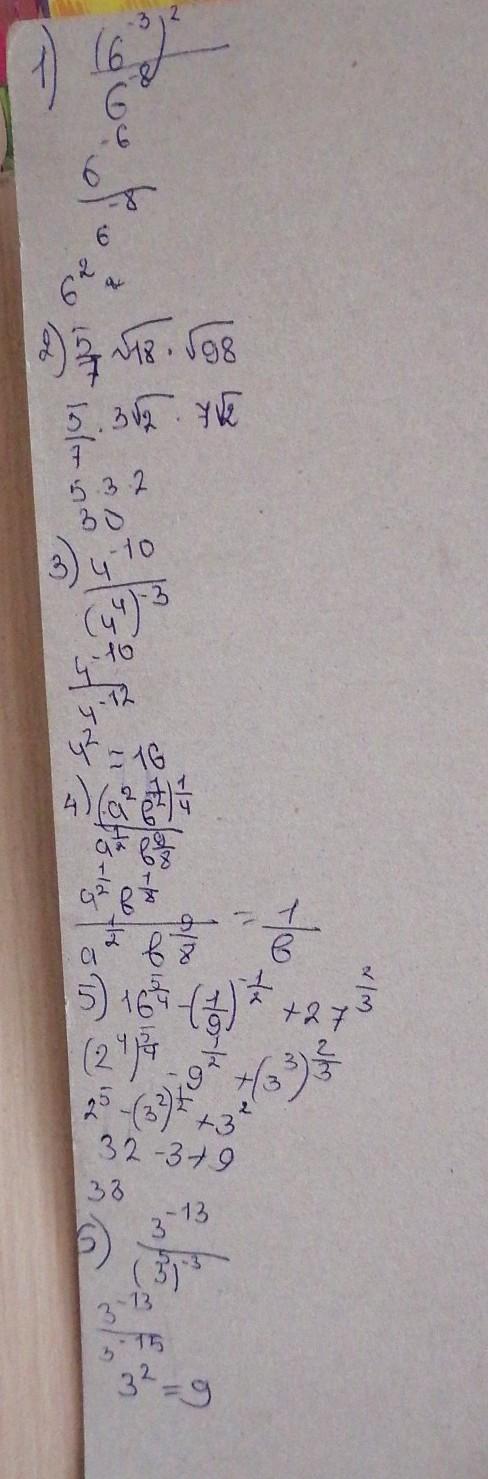 1) (6⁻³)² / 6⁻⁸
6⁻⁶ / 6⁻⁸
6²
2) 5/7 · √18 · √98
5/7 · 3√2 · 7√2
5·3·2
30
3) 4⁻¹⁰ / (4⁴)⁻³
4⁻¹⁰ / 4⁻¹²
4² = 16
4) (a² b^(1/2))^(1/4) / a^(1/2) b^(9/8)
a^(1/2) b^(1/8) / a^(1/2) b^(9/8) = 1/b
5) 16^(5/4) - (1/9)^(-1/2) + 27^(2/3)
(2⁴)^(5/4) - 9^(1/2) + (3³)^(2/3)
2⁵ - (3²)^(1/2) + 3²
32 - 3 + 9
38
6) 3⁻¹³ / (3⁵)⁻³
3⁻¹³ / 3⁻¹⁵
3² = 9